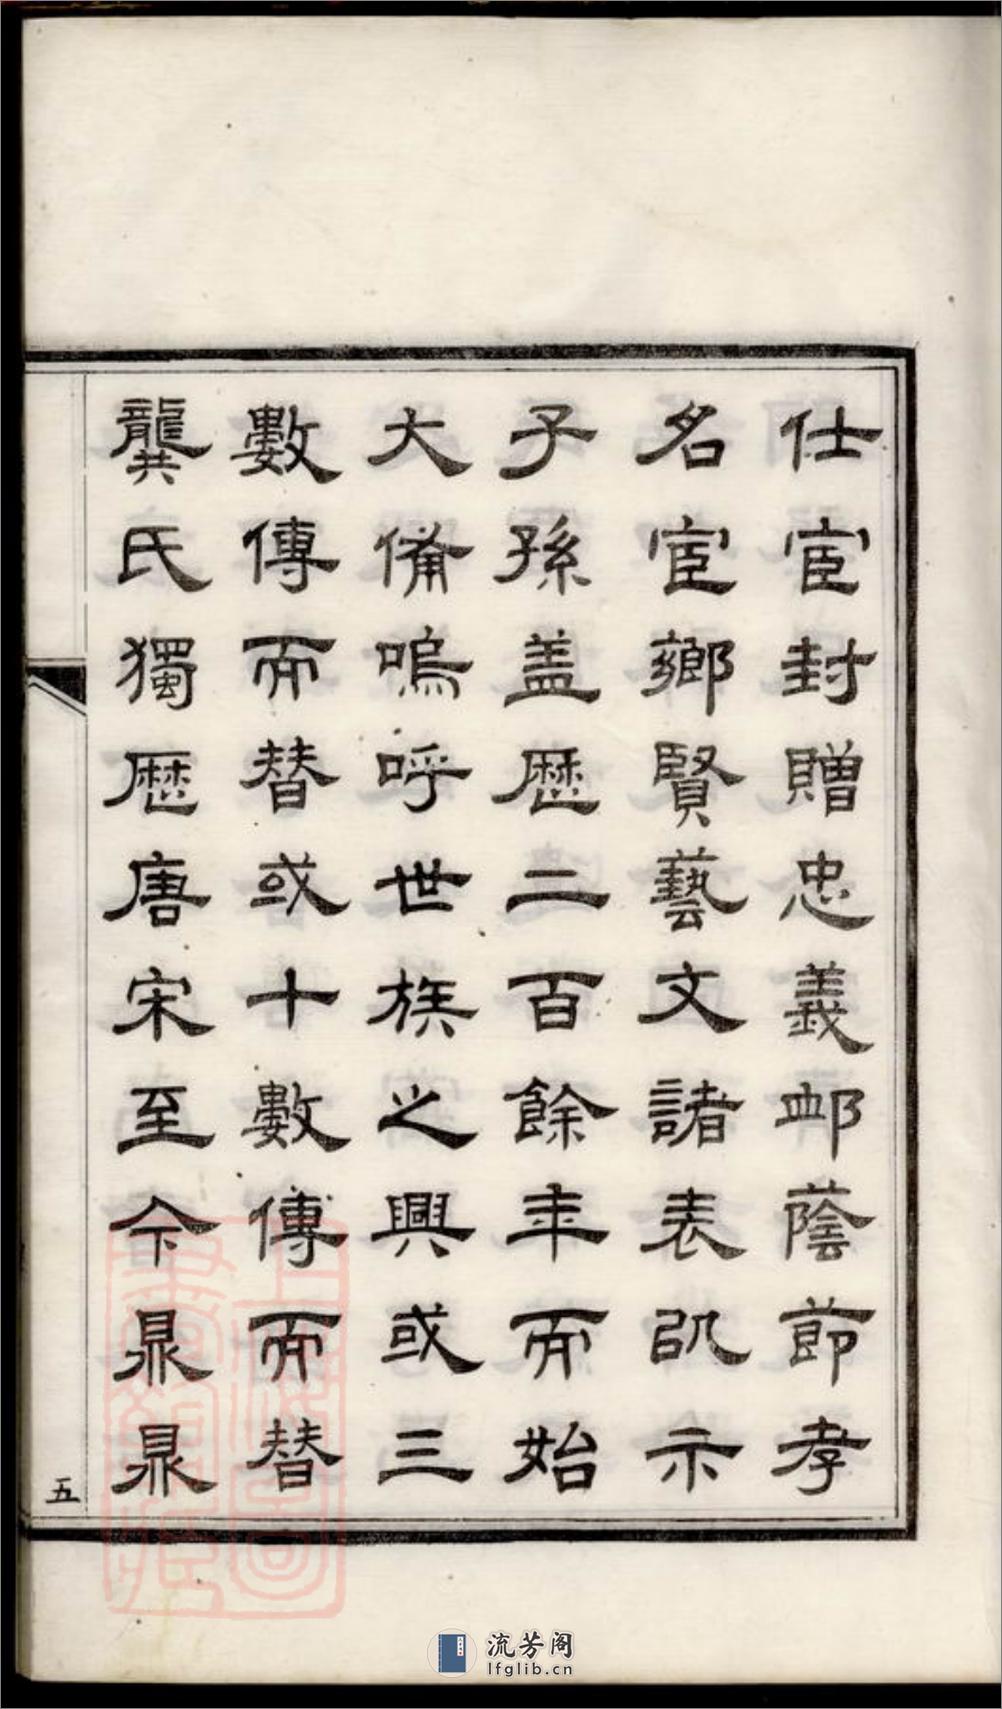 仕宦封贈忠義卹蔭節孝
名宦鄉賢藝文諸表以示
子孫盖歷二百餘年而始
大備嗚呼世族之興或三
數傳而替或十數傳而替
龔氏獨歷唐宋至今鼎鼎
五
上海圖書館藏
流芳阁
lfglib.cn